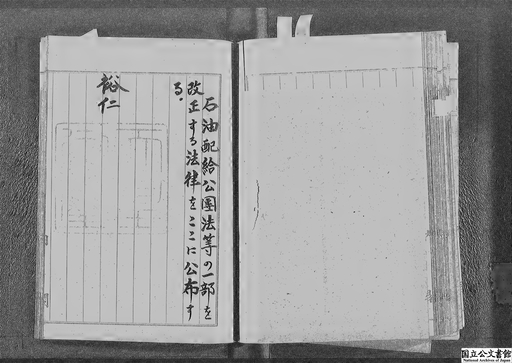 石油配給公團法等の一部を
改正する法律をここに公布す
る。
裕仁
国立公文書館
National Archives of Japan